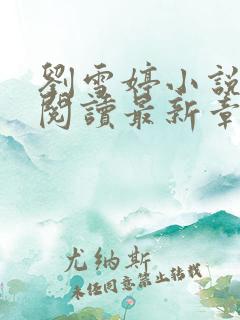 劉雪婷小說
閱讀最新章
尤纳斯
未经同意禁止转载